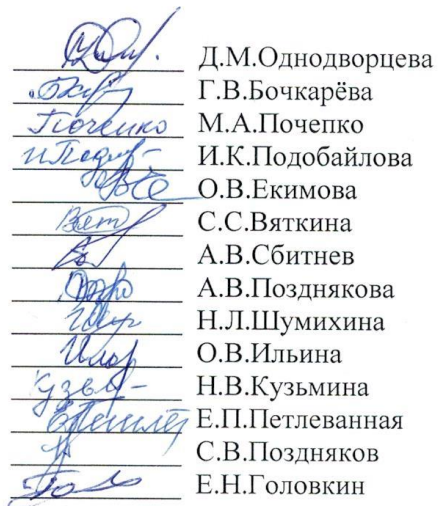 Д.М.Однодворцева
Г.В.Бочкарёва
Почепко М.А.Почепко
И.К.Подобайлова
О.В.Екимова
Вят С.С.Вяткина
А.В.Сбитнев
А.В.Позднякова
Н.Л.Шумихина
О.В.Ильина
Н.В.Кузьмина
Е.П.Петлеванная
С.В.Поздняков
Е.Н.Головкин